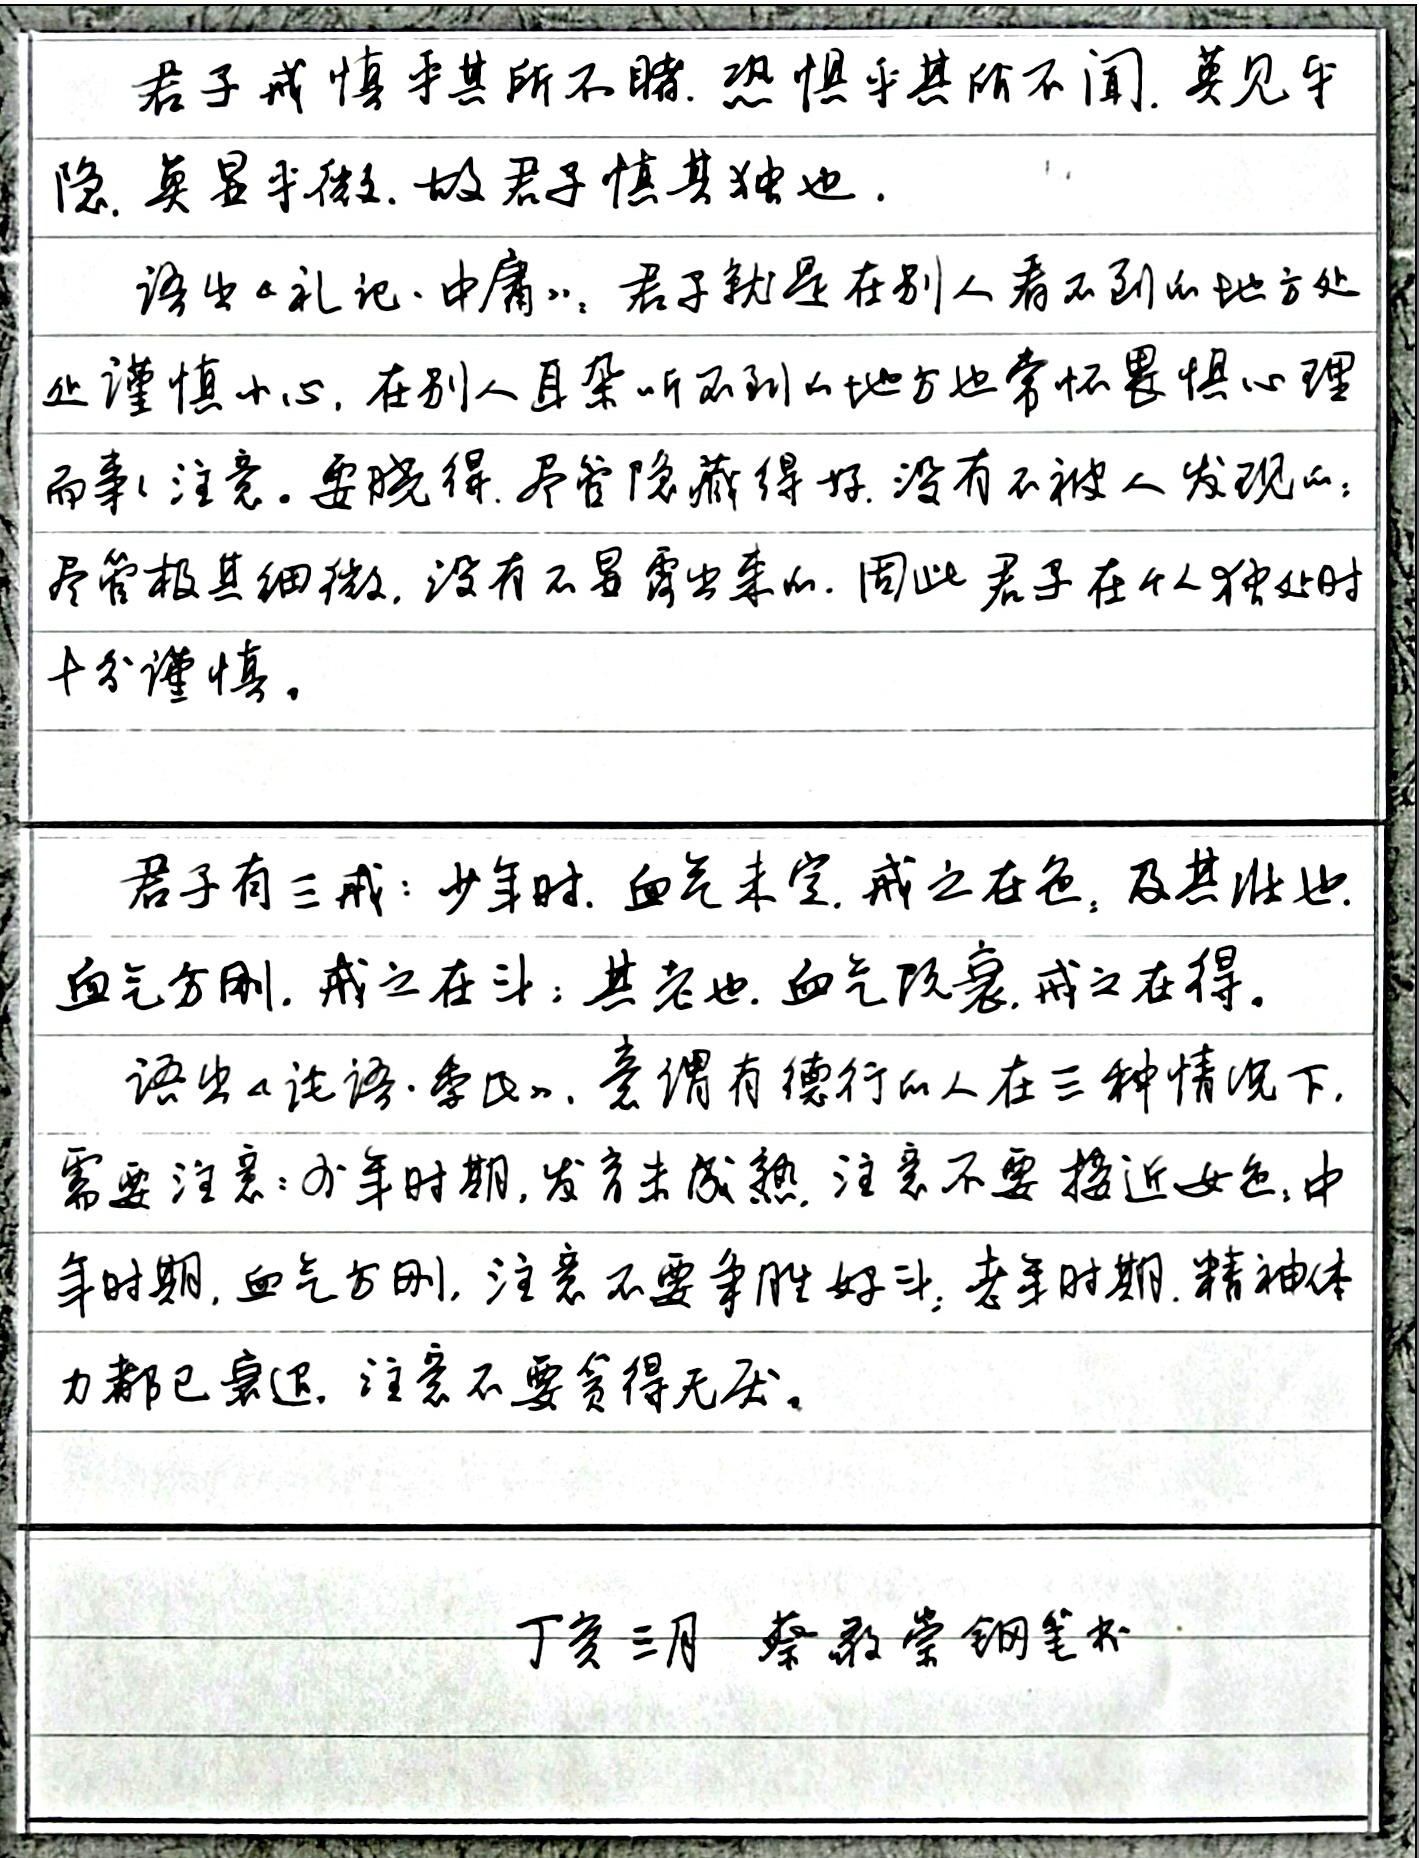 君子戒慎乎其所不睹.恐惧乎其所不闻.莫见乎
隐.莫显乎微.故君子慎其独也.
语出《礼记·中庸》:君子就是在别人看不到的地方处
处谨慎小心,在别人耳朵听不到的地方也常怀畏惧心理
而事々注意。要晓得.尽管隐藏得好.没有不被人发现的;
尽管极其细微,没有不显露出来的.因此君子在个人独处时
十分谨慎。
君子有三戒:少年时.血气未定.戒之在色;及其壮也.
血气方刚.戒之在斗;其老也.血气既衰.戒之在得。
语出《论语·季氏》.意谓有德行的人在三种情况下,
需要注意:少年时期,发育未成熟,注意不要接近女色;中
年时期,血气方刚,注意不要争胜好斗;老年时期.精神体
力都已衰退,注意不要贪得无厌。
丁亥三月 蔡敬崇钢笔书